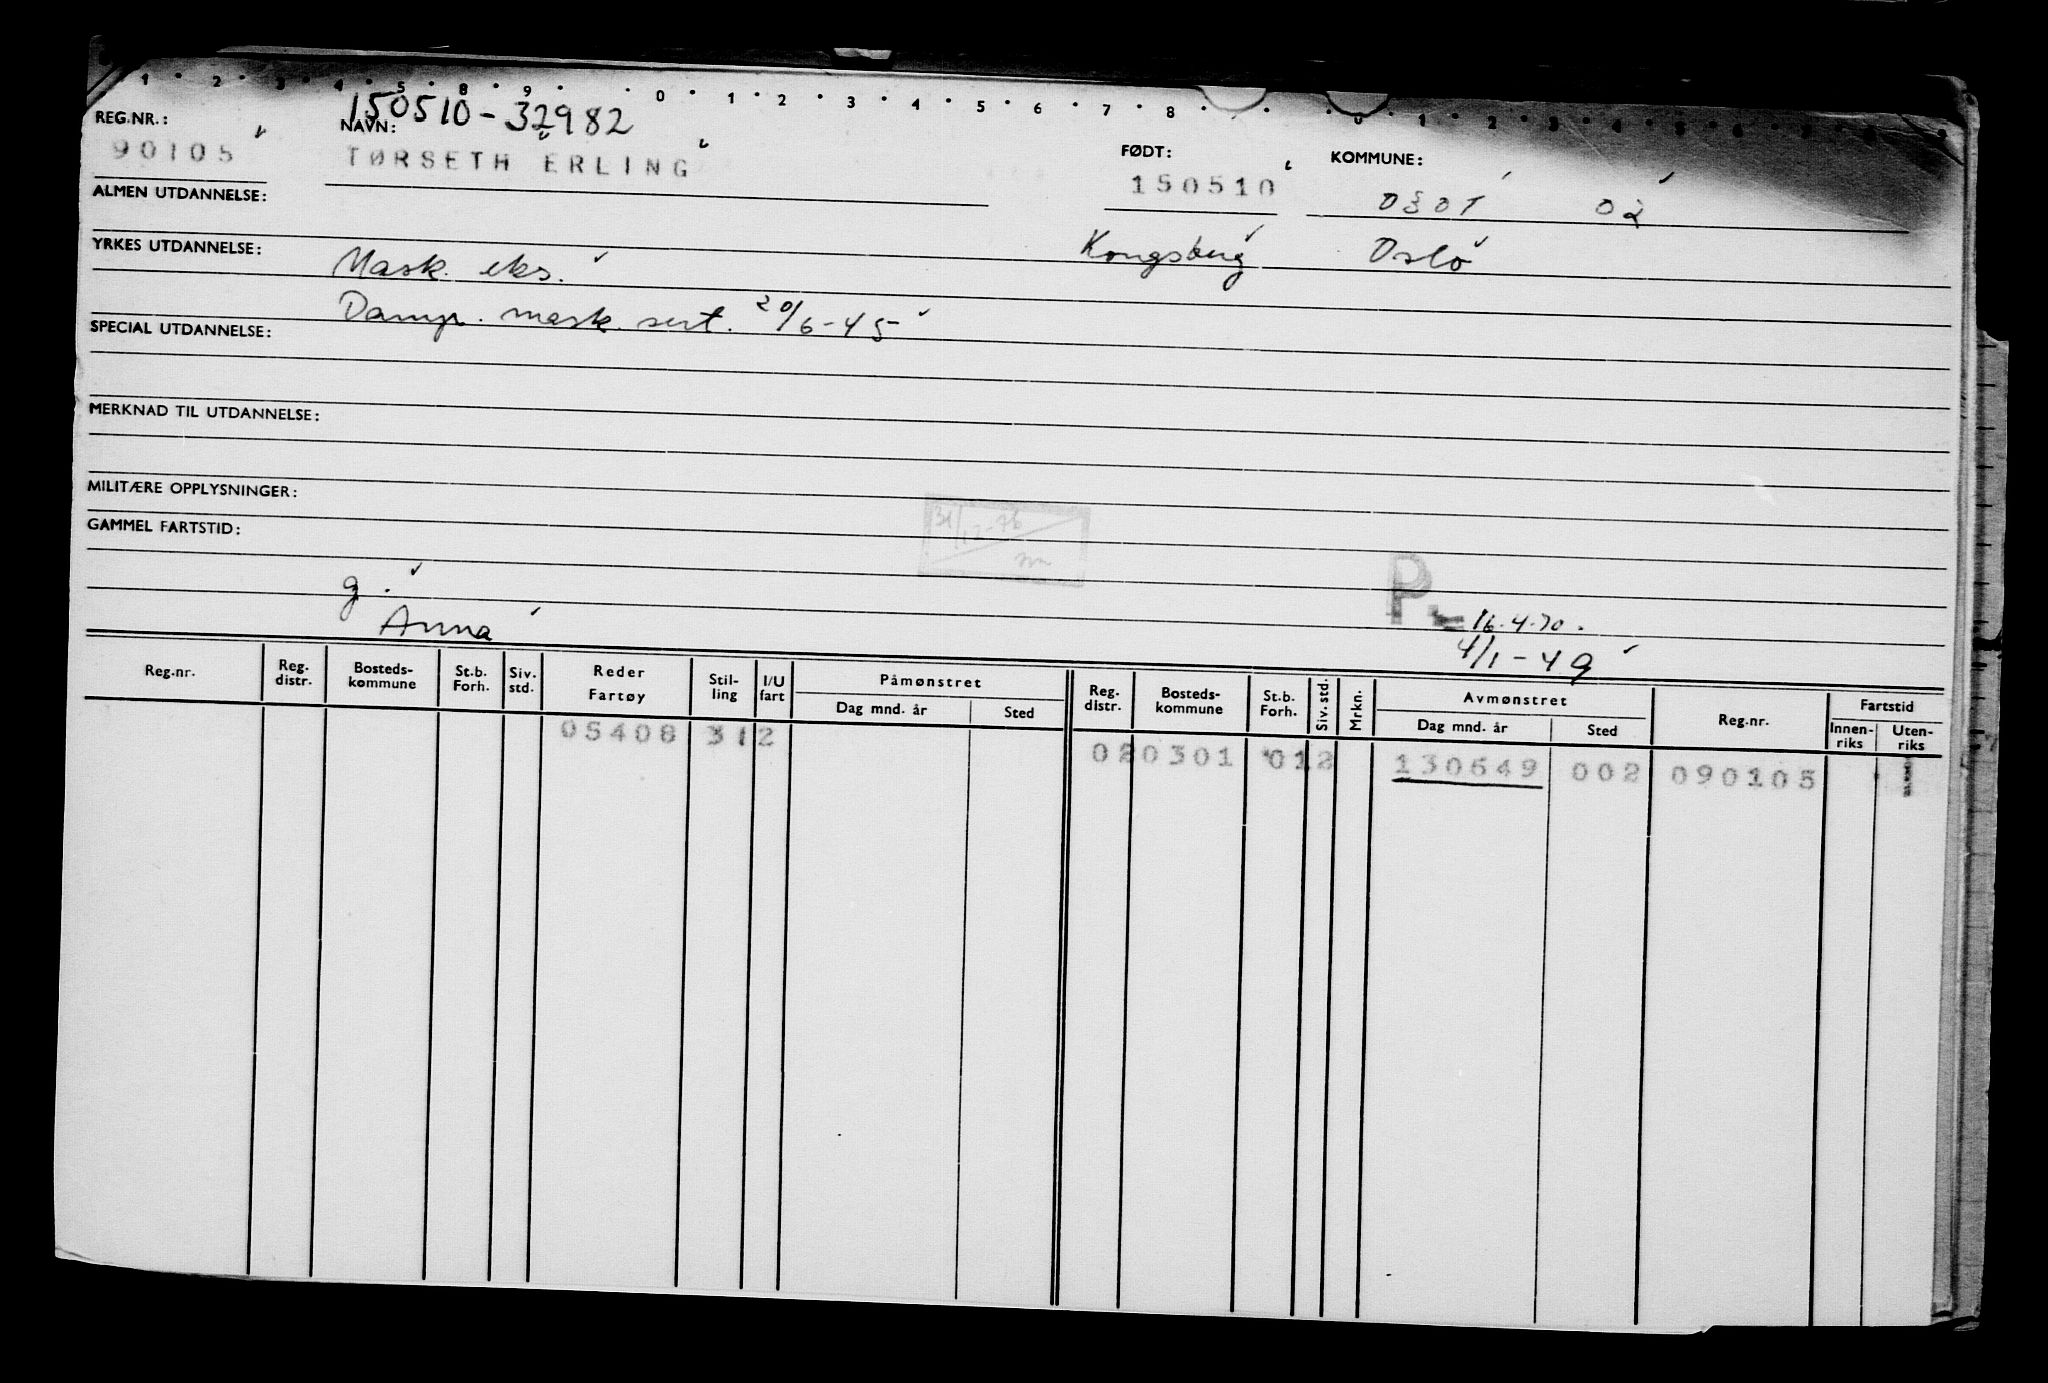 1 2 3 4 5 8 9 0 1 2 3 4 5 6 7 8 0 1 2 3 4 5 6 7 8 9
150510-32982
REG.NR.: NAVN: FØDT: KOMMUNE:
90105 TØRSETH ERLING 150510 0301 02
ALMEN UTDANNELSE:
YRKES UTDANNELSE: Mask. eks. Kongsberg Oslo
Damp. mask. sert. 20/6-45
SPECIAL UTDANNELSE:
MERKNAD TIL UTDANNELSE:
MILITÆRE OPPLYSNINGER:
31/12-76
GAMMEL FARTSTID:
g. P.
16.4.70.
Anna 4/1-49
Reg.nr. Reg. distr. Bosteds-kommune St.b. Forh. Siv. std. Reder Fartøy Stil-ling I/U fart Påmønstret Dag mnd. år Sted Reg. distr. Bosteds-kommune St.b. Forh. Siv. std. Mrkn. Avmønstret Dag mnd. år Sted Reg.nr. Fartstid Innen-riks Uten-riks
05408 312 020301 012 130649 002 090105